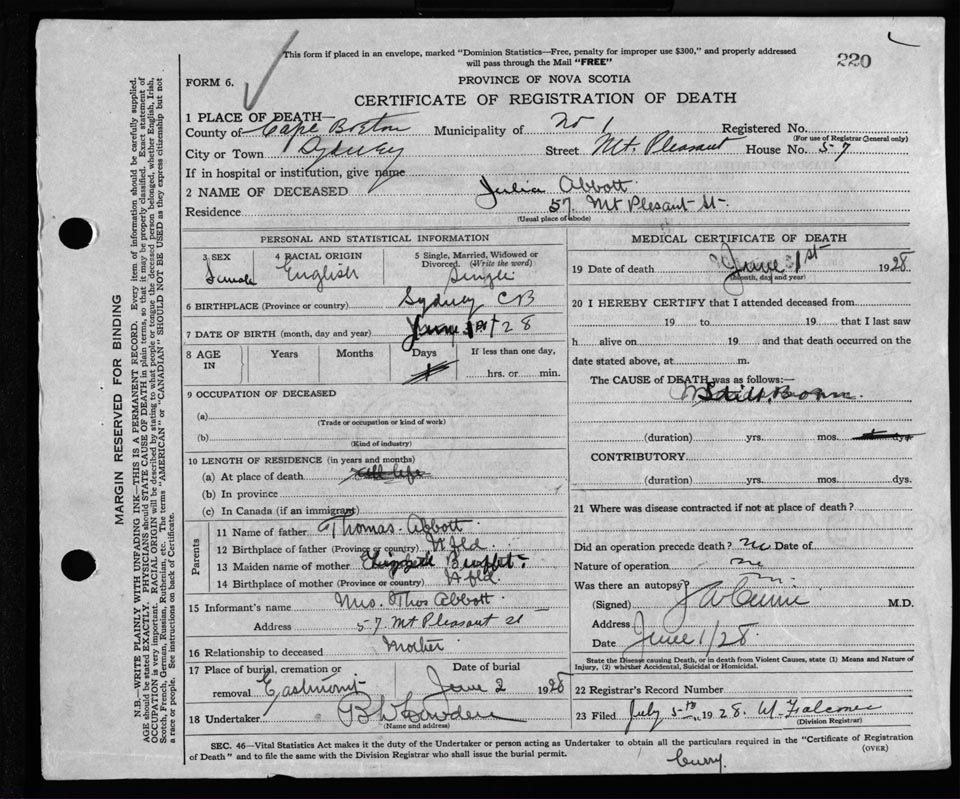 This form if placed in an envelope, marked "Dominion Statistics—Free, penalty for improper use $300," and properly addressed
will pass through the Mail "FREE"
220
FORM 6.
PROVINCE OF NOVA SCOTIA
CERTIFICATE OF REGISTRATION OF DEATH
1 PLACE OF DEATH—
County of Cape Breton Municipality of No 1 Registered No.
(For use of Registrar General only)
City or Town Sydney Street Mt. Pleasant House No. 57
If in hospital or institution, give name
2 NAME OF DECEASED Julia Abbott
Residence 57 Mt Plesant St
(Usual place of abode)
PERSONAL AND STATISTICAL INFORMATION
3 SEX Female
4 RACIAL ORIGIN English
5 Single, Married, Widowed or Divorced. (Write the word) Single
6 BIRTHPLACE (Province or country) Sydney CB
7 DATE OF BIRTH (month, day and year) June 1st 28
8 AGE IN Years Months Days If less than one day, hrs. or min.
9 OCCUPATION OF DECEASED
(a)
(Trade or occupation or kind of work)
(b)
(Kind of industry)
10 LENGTH OF RESIDENCE (in years and months)
(a) At place of death All life
(b) In province
(c) In Canada (if an immigrant)
Parents
11 Name of father Thomas Abbott
12 Birthplace of father (Province or country) Nfld.
13 Maiden name of mother Elizabeth Buffett
14 Birthplace of mother (Province or country) Nfld.
15 Informant's name Mrs. Thos Abbott
Address 57 Mt Pleasant St
16 Relationship to deceased Mother
17 Place of burial, cremation or removal Eastmont
Date of burial June 2 1928
18 Undertaker
(Name and address)
MEDICAL CERTIFICATE OF DEATH
19 Date of death June 1st 1928
(Month, day and year)
20 I HEREBY CERTIFY that I attended deceased from
19 to 19 that I last saw
h alive on 19 and that death occurred on the
date stated above, at m.
The CAUSE of DEATH was as follows:—
Still Born.
(duration) yrs. mos. dys.
CONTRIBUTORY
(duration) yrs. mos. dys.
21 Where was disease contracted if not at place of death?
Did an operation precede death? no Date of
Nature of operation
Was there an autopsy?
(Signed) M.D.
Address
Date June 1/28.
State the Disease causing Death, or in death from Violent Causes, state (1) Means and Nature of
Injury, (2) whether Accidental, Suicidal or Homicidal.
22 Registrar's Record Number
23 Filed July 5th 1928. W. Falconer
(Division Registrar)
SEC. 46—Vital Statistics Act makes it the duty of the Undertaker or person acting as Undertaker to obtain all the particulars required in the "Certificate of Registration
of Death" and to file the same with the Division Registrar who shall issue the burial permit.
(OVER)
Curry.
MARGIN RESERVED FOR BINDING
N.B.—WRITE PLAINLY WITH UNFADING INK—THIS IS A PERMANENT RECORD. Every item of information should be carefully supplied.
AGE should be stated EXACTLY. PHYSICIANS should STATE CAUSE OF DEATH in plain terms, so that it may be properly classified. Exact statement of
OCCUPATION is very important. RACIAL ORIGIN will be described by stating to what people or tongue the deceased person belonged, whether English, Irish,
Scotch, French, German, Russian, Ruthenian, etc. The terms "AMERICAN" or "CANADIAN" SHOULD NOT BE USED as they express citizenship but not
a race or people. See instructions on back of Certificate.